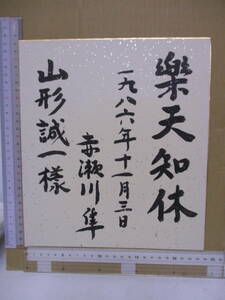 樂天知休
一九八六年十一月三日
赤瀬川隼
山形誠一様